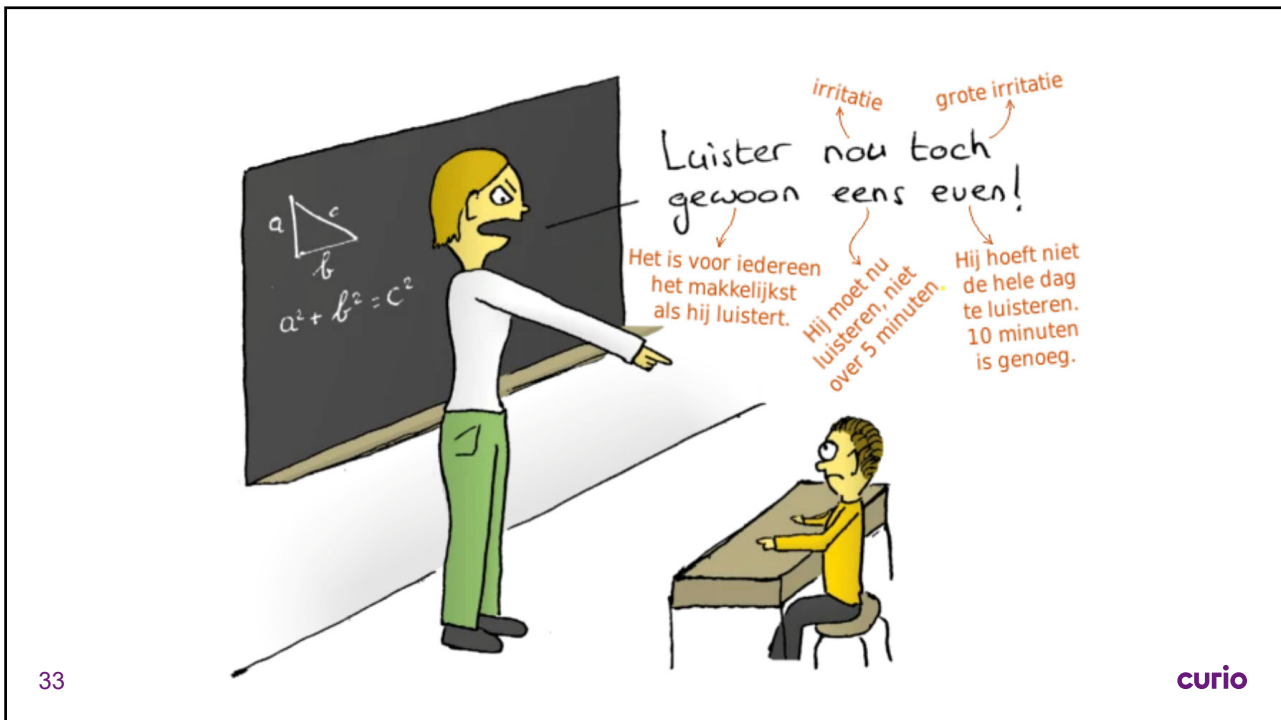 irritatie
grote irritatie
Luister nou toch
gewoon eens even!
Het is voor iedereen
het makkelijkst
als hij luistert.
Hij moet nu
luisteren, niet
over 5 minuten.
Hij hoeft niet
de hele dag
te luisteren.
10 minuten
is genoeg.
a
c
b
a² + b² = c²
33
curio